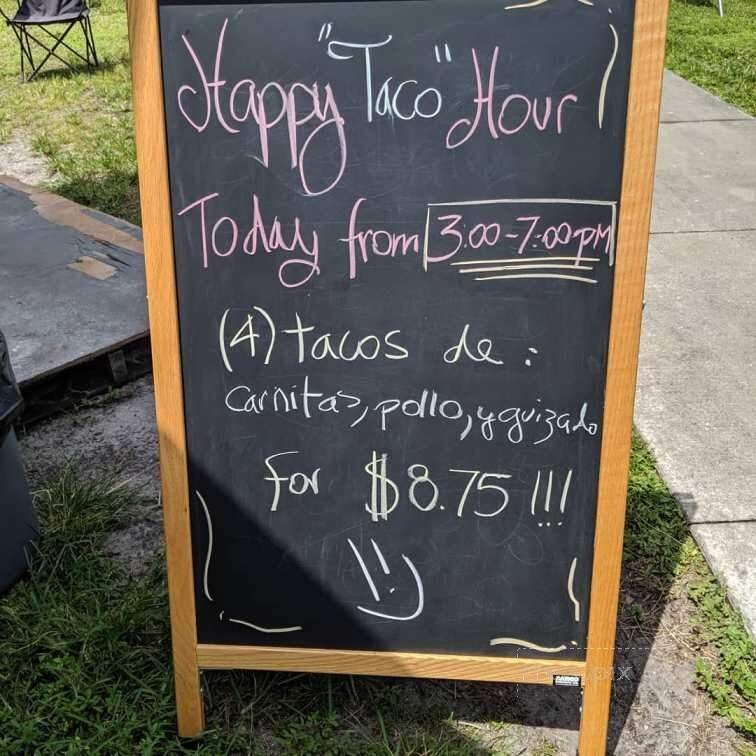 Happy "Taco" Hour
Today from 3:00-7:00pM
(4) tacos de:
carnitas, pollo, y guizado
for $8.75 !!!